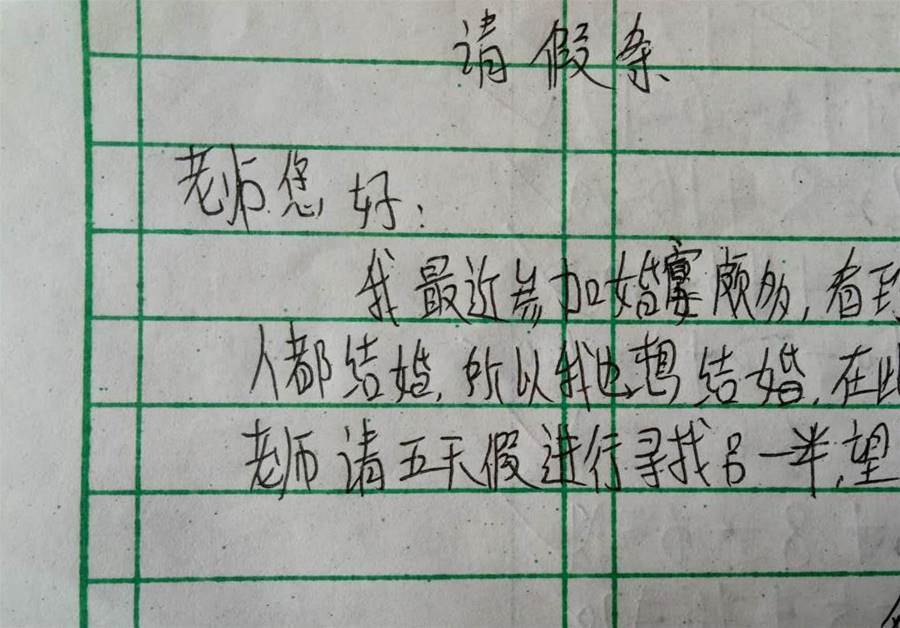 请假条
老师您好:
我最近参加婚宴颇多,看到
人都结婚,所以我也想结婚,在此
老师请五天假进行寻找另一半,望